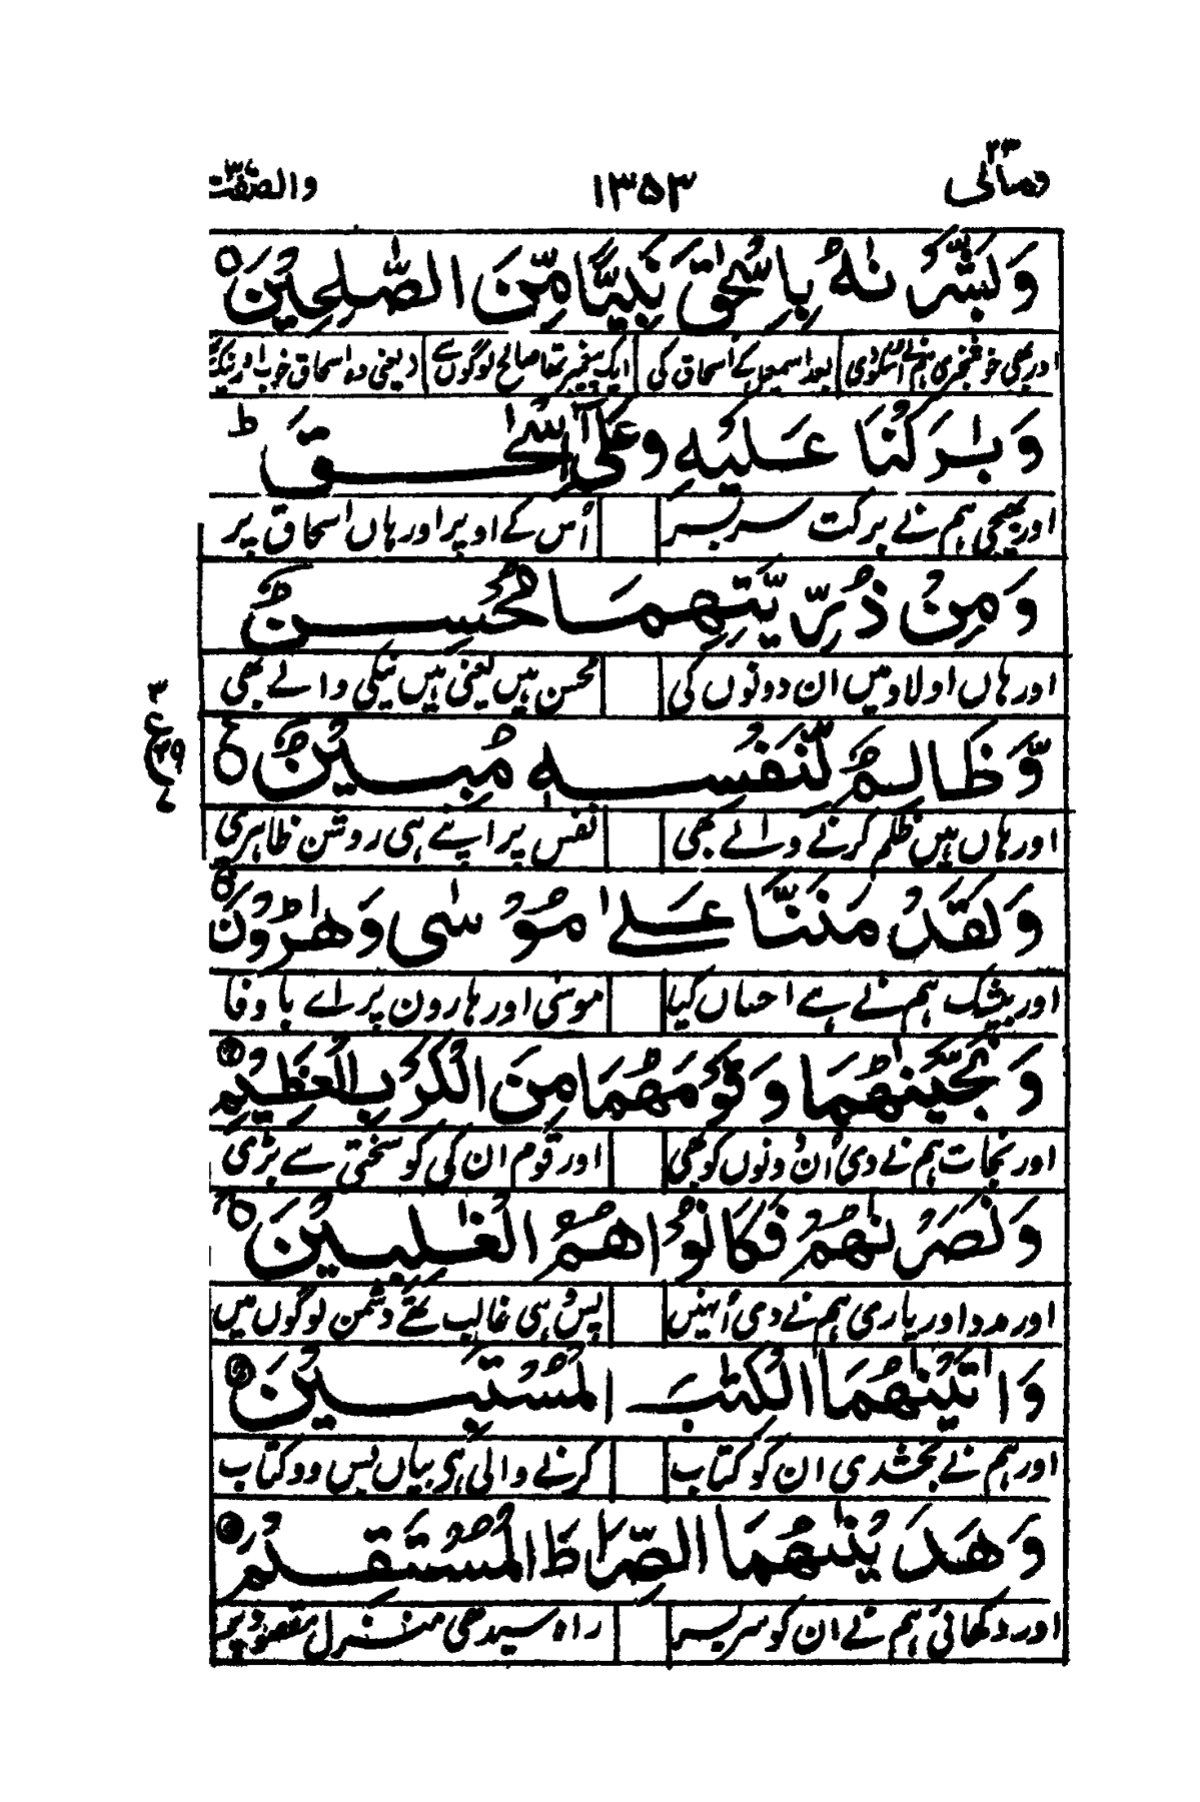 ومالی ۲۳ ۱۳۵۳ والصّٰفّٰت ۳۷
وَبَشَّرْنٰهُ بِاِسْحٰقَ نَبِیًّا مِّنَ الصّٰلِحِیْنَ ○
اور بھی خوشخبری ہم نے اسکو دی بعد اسمعیل کے اسحاق کی ایک پیغمبر تھا صالح لوگوں سے دیعنی وہ اسحاق خوب اور نیک
وَبٰرَكْنَا عَلَیْهِ وَعَلٰۤی اِسْحٰقَ ط
اور بھیجی ہم نے برکت سر بسر اُس کے اوپر اور ہاں اسحاق پر
وَمِنْ ذُرِّیَّتِهِمَا مُحْسِنٌ
اور ہاں اولاد میں ان دونوں کی محسن ہیں یعنی ہیں نیکی والے بھی
وَّظَالِمٌ لِّنَفْسِهٖ مُبِیْنٌ ○ ع
۳ ع ۳۹ ۷
اور ہاں ہیں ظلم کرنے والے بھی نفس پر اپنے ہی روشن ظاہری
وَلَقَدْ مَنَنَّا عَلٰی مُوْسٰی وَهٰرُوْنَ ○
اور بیشک ہم نے ہے احساں کیا موسٰی اور ہارون پر اے با وفا
وَنَجَّیْنٰهُمَا وَقَوْمَهُمَا مِنَ الْكَرْبِ الْعَظِیْمِ ○
اور نجات ہم نے دی اُن دونوں کو بھی اور قوم ان کی کو سختی سے بڑی
وَنَصَرْنٰهُمْ فَكَانُوْا هُمُ الْغٰلِبِیْنَ ○
اور مدد اور یاری ہم نے دی اُنہیں پس وُہی غالب تھے دشمن لوگوں میں
وَاٰتَیْنٰهُمَا الْكِتٰبَ الْمُسْتَبِیْنَ ○
اور ہم نے بخشدی ان کو کتاب کرنے والی ہی بیاں بس وو کتاب
وَهَدَیْنٰهُمَا الصِّرَاطَ الْمُسْتَقِیْمَ ○
اور دکھائی ہم نے ان کو سر بسر راہ سیدھی منزل مقصود پر